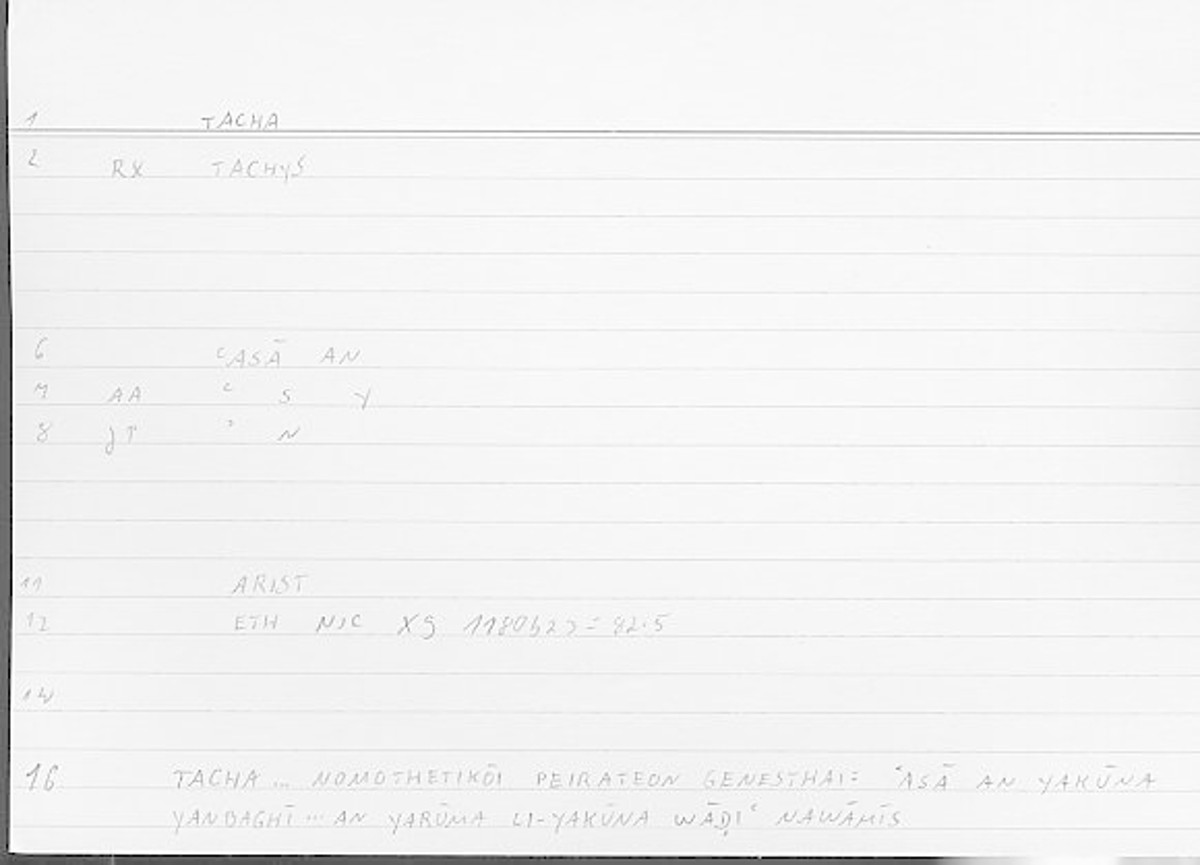 1 TACHA
2 RX TACHYS
6 ʿASĀ AN
7 AA ʿ S Y
8 JT ʾ N
11 ARIST
12 ETH NIC X9 1180b23 = 82.5
14
16 TACHA ... NOMOTHETIKŌI PEIRATEON GENESTHAI: ʿASĀ AN YAKŪNA
YANBAGHĪ ... AN YARŪMA LI-YAKŪNA WĀḌIʿ NAWĀMĪS